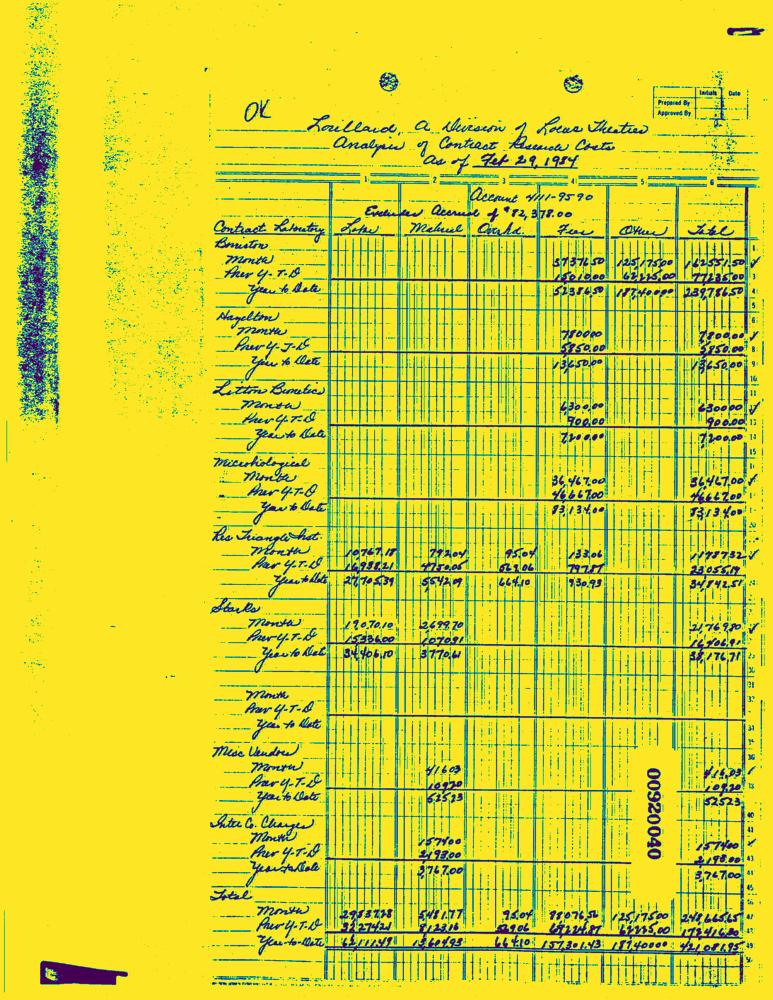 OK
Initials Date
Prepared By
Approved By
Lorillard, A Division of Loews Theatres
Analysis of Contract Research Costs
As of Feb 29, 1984
1 2 3 4 5 6
Account 4111-9590
Excludes Accrual of $82,378.00
Contract Laboratory Labor Material Ovrhd. Fees Other Total
Borriston
Month 37376.50 125,175.00 162,551.50
Prev Y-T-D 15010.00 62225.00 77235.00
Year to Date 52386.50 187,400.00 239,786.50
Hazelton
Month 7800.00 7800.00
Prev Y-T-D 5850.00 5850.00
Year to Date 13,650.00 13,650.00
Litton Bionetics
Month 6300.00 6300.00
Prev Y-T-D 900.00 900.00
Year to Date 7,200.00 7,200.00
Microbiological
Month 36,467.00 36,467.00
Prev Y-T-D 46,667.00 46,667.00
Year to Date 83,134.00 83,134.00
Res Triangle Inst.
Month 10767.18 792.04 95.04 133.06 11787.32
Prev Y-T-D 16,938.21 4750.05 569.06 797.87 23,055.19
Year to Date 27,705.39 5,542.09 664.10 930.93 34,842.51
Starks
Month 19,070.10 2699.70 21,769.80
Prev Y-T-D 15,336.00 1070.91 16,406.91
Year to Date 34,406.10 3770.61 38,176.71
Month
Prev Y-T-D
Year to Date
Misc Vendors
Month 416.03 416.03
Prev Y-T-D 109.20 109.20
Year to Date 525.23 525.23
Inter Co. Charges
Month 1574.00 1574.00
Prev Y-T-D 2,193.00 2,193.00
Year to Date 3,767.00 3,767.00
Total
Month 29,837.28 5,481.77 95.04 88,076.56 125,175.00 248,665.65
Prev Y-T-D 32,274.21 8,123.16 569.06 69,224.87 62,225.00 172,416.30
Year-to-Date 62,111.49 13,604.93 664.10 157,301.43 187,400.00 421,081.95
00920040